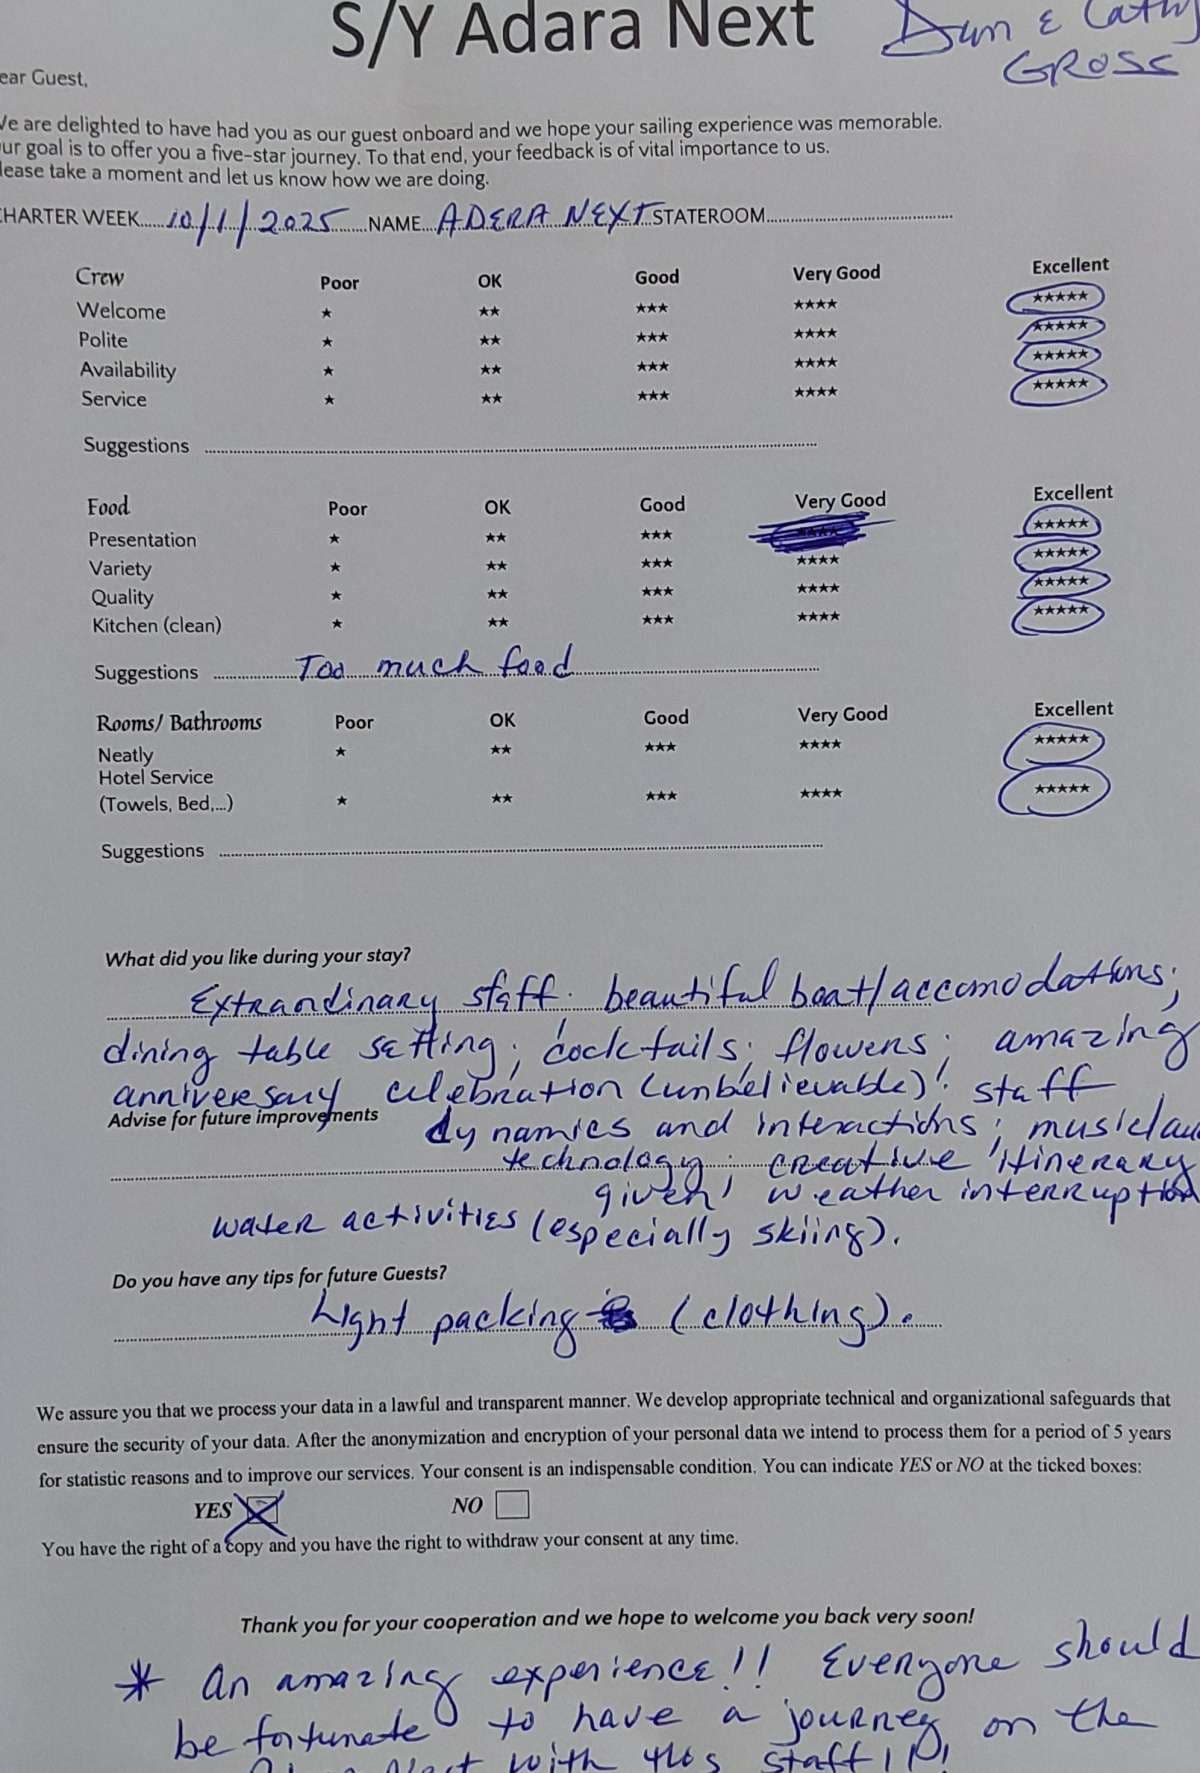 S/Y Adara Next
Dan & Cathy
GROSS
ear Guest,
We are delighted to have had you as our guest onboard and we hope your sailing experience was memorable.
ur goal is to offer you a five-star journey. To that end, your feedback is of vital importance to us.
lease take a moment and let us know how we are doing.
CHARTER WEEK 10/1/2025 NAME ADERA NEXT STATEROOM
Crew Poor OK Good Very Good Excellent
Welcome ★ ★★ ★★★ ★★★★ ★★★★★
Polite ★ ★★ ★★★ ★★★★ ★★★★★
Availability ★ ★★ ★★★ ★★★★ ★★★★★
Service ★ ★★ ★★★ ★★★★ ★★★★★
Suggestions
Food Poor OK Good Very Good Excellent
Presentation ★ ★★ ★★★ ★★★★ ★★★★★
Variety ★ ★★ ★★★ ★★★★ ★★★★★
Quality ★ ★★ ★★★ ★★★★ ★★★★★
Kitchen (clean) ★ ★★ ★★★ ★★★★ ★★★★★
Suggestions Too much food
Rooms/ Bathrooms Poor OK Good Very Good Excellent
Neatly ★ ★★ ★★★ ★★★★ ★★★★★
Hotel Service
(Towels, Bed,...) ★ ★★ ★★★ ★★★★ ★★★★★
Suggestions
What did you like during your stay?
Extraordinary staff. beautiful boat/accomodations;
dining table setting; cocktails; flowers; amazing
anniversary celebration (unbelievable)! staff
Advise for future improvements
dynamics and interactions;
technology; creative itinerary
given weather interruption
water activities (especially skiing).
Do you have any tips for future Guests?
Light packing (clothing).
We assure you that we process your data in a lawful and transparent manner. We develop appropriate technical and organizational safeguards that
ensure the security of your data. After the anonymization and encryption of your personal data we intend to process them for a period of 5 years
for statistic reasons and to improve our services. Your consent is an indispensable condition. You can indicate YES or NO at the ticked boxes:
YES NO
You have the right of a copy and you have the right to withdraw your consent at any time.
Thank you for your cooperation and we hope to welcome you back very soon!
* An amazing experience!! Everyone should
be fortunate to have a journey on the
Next with this staff!!!